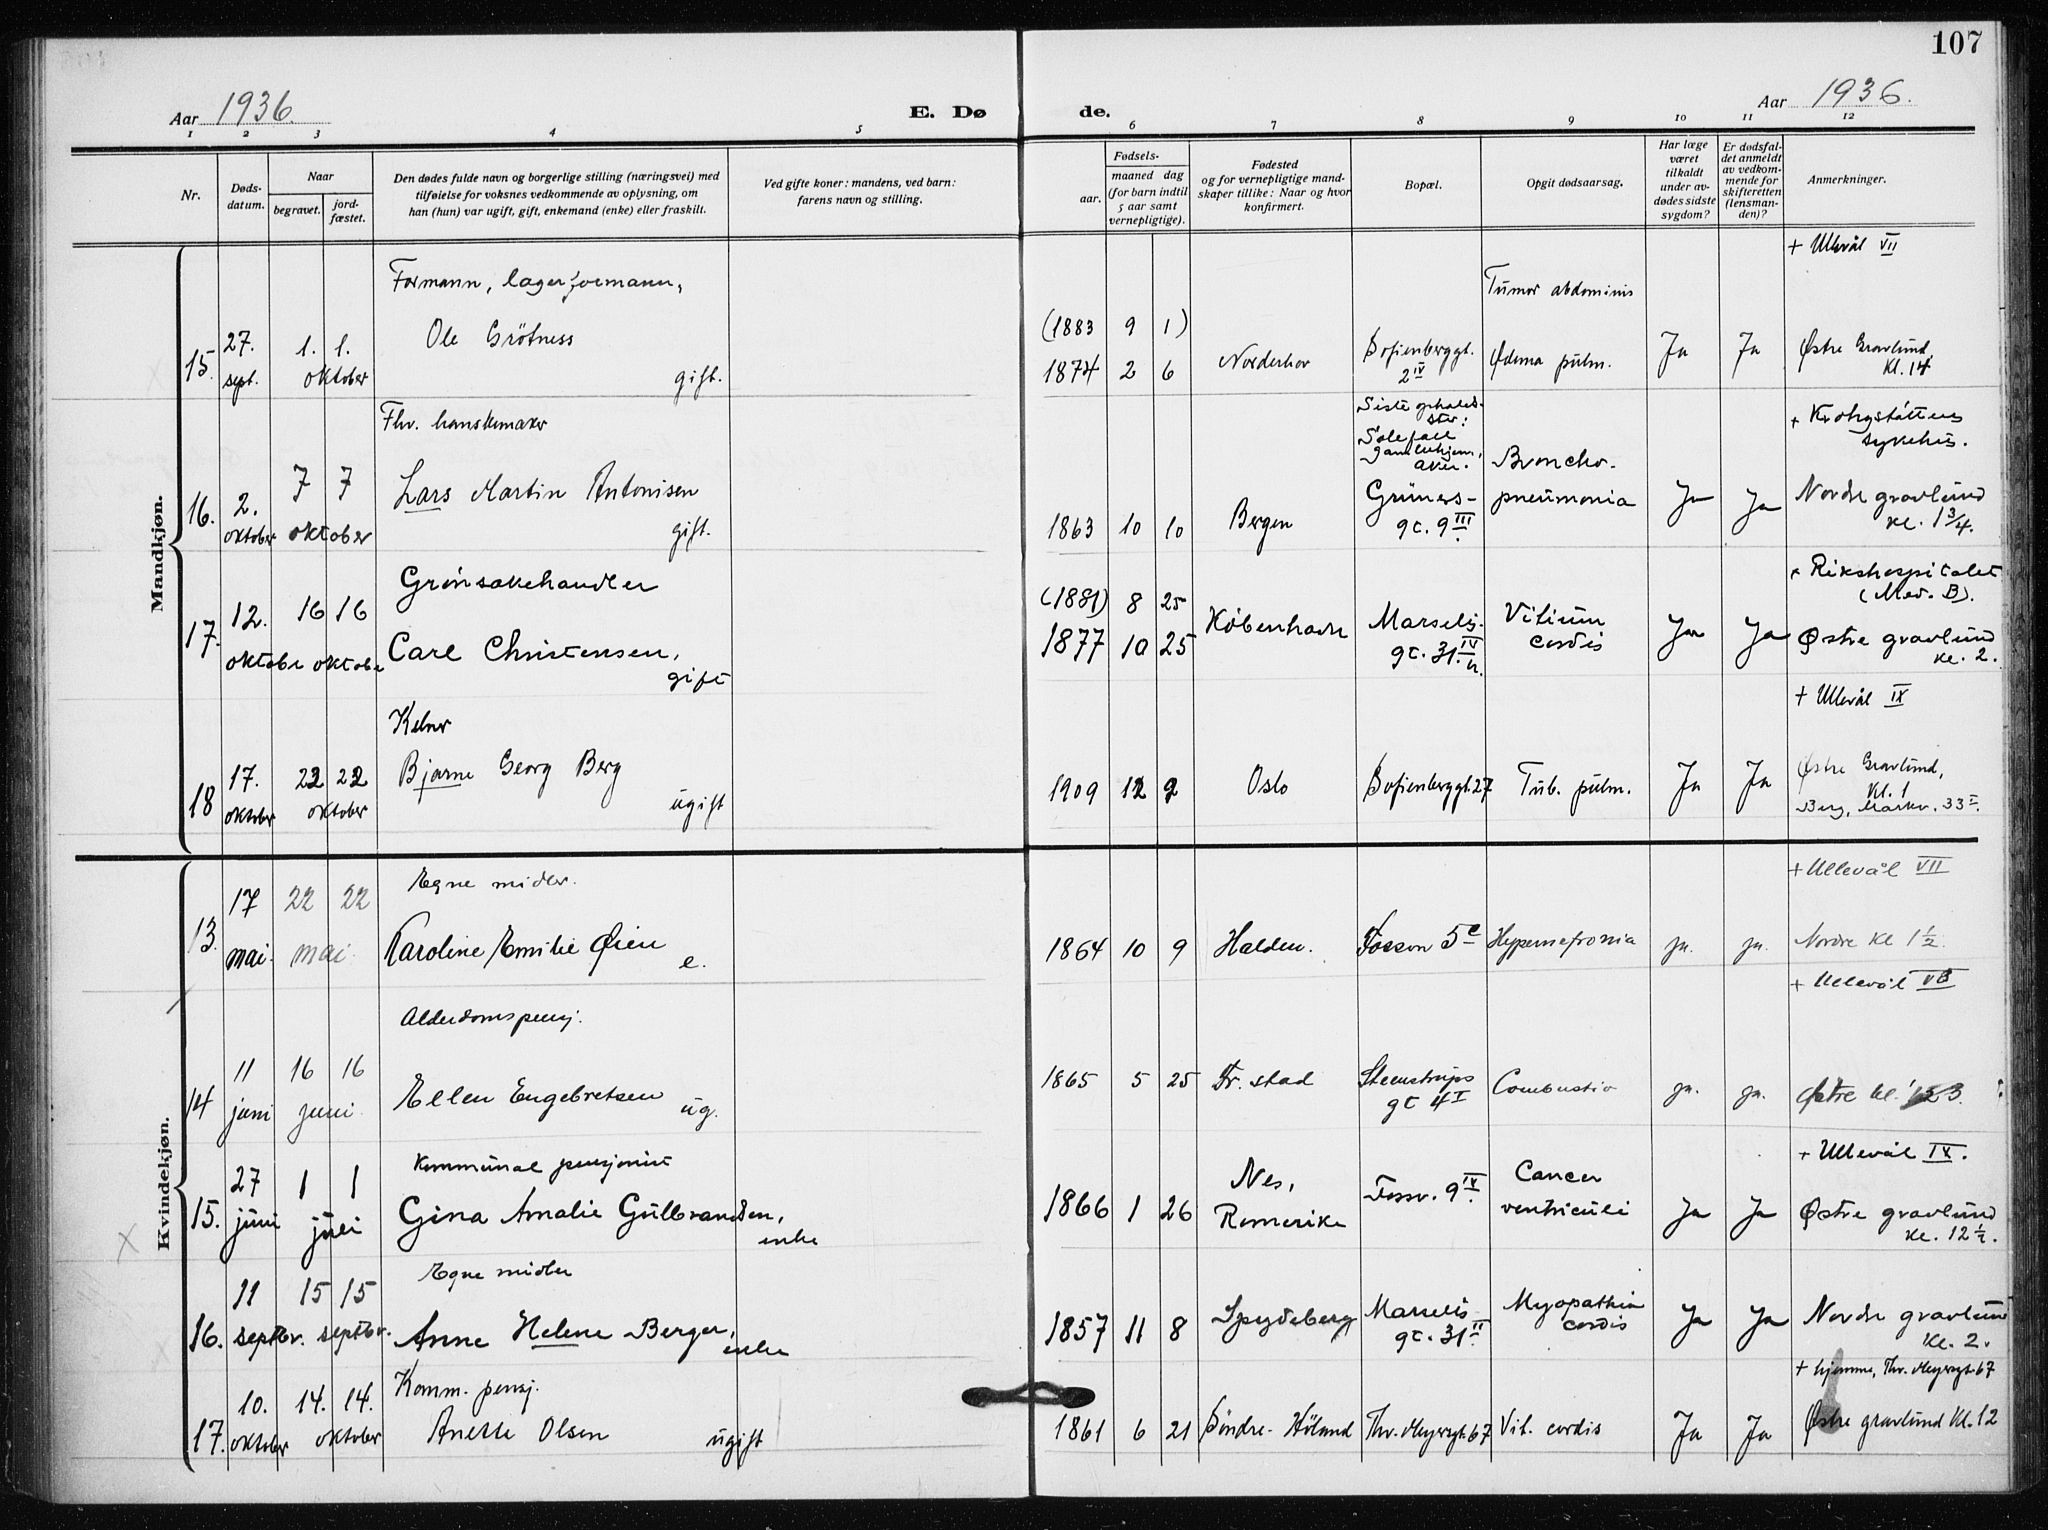 107
Aar 1936. E. Dø de. Aar 1936.
1 2 3 4 5 6 7 8 9 10 11 12
Nr.
Døds-
datum.
Naar
begravet.
jord-
fæstet.
Den dødes fulde navn og borgerlige stilling (næringsvei) med
tilføielse for voksnes vedkommende av oplysning, om
han (hun) var ugift, gift, enkemand (enke) eller fraskilt.
Ved gifte koner: mandens, ved barn:
farens navn og stilling.
Fødsels-
aar.
maaned dag
(for barn indtil
5 aar samt
vernepligtige).
Fødested
og for vernepligtige mand-
skaper tillike: Naar og hvor
konfirmert.
Bopæl.
Opgit dødsaarsag.
Har læge
været
tilkaldt
under av-
dødes sidste
sygdom?
Er dødsfal-
det anmeldt
av vedkom-
mende for
skifteretten
(lensman-
den)?
Anmerkninger.
Mandkjøn.
+ Ullevål VII
Formann, lagerformann,
Tumor abdominis
(1883 9 1)
15. 27. sept. 1. 1. oktober Ole Grötness gift. 1874 2 6 Norderhov Sofienberggt. 2 IV Ødema pulm. Ja Ja Østre Gravlund, Kl. 14
Fhv. hanskemaker
Siste opholds-
ster:
Solefall
gamlehjem,
Aker.
+ Krohgstøttens
sykehus.
Broncho-
16. 2. oktober 7 7 oktober Lars Martin Antonisen gift. 1863 10 10 Bergen Grüners- gt. 9 III pneumonia Ja Ja Nordre gravlund kl. 1 3/4.
Grönsakehandler
+ Rikshospitalet
(Med. B).
(1881) 8 25
17. 12. oktober 16 16 oktober Carl Christensen, gift 1877 10 25 København Marselis. gt. 31 IV h. Vitium cordis Ja Ja Østre gravlund kl. 2.
Kelner
+ Ullevål IX
18 17. oktober 22 22 oktober Bjarne Georg Berg ugift 1909 12 2 Oslo Sofienberggt. 27 Tub. pulm. Ja Ja Østre Gravlund, Kl. 1
Berg, Markv. 33 I.
Kvindekjøn.
Egne midler.
+ Ullevål VII
13. 17 mai. 22 22 mai. Karoline Emilie Øien e. 1864 10 9 Halden. Fossvn 5c Hypernefronia ja. ja. Nordre Kl 1 1/2.
+ Ullevål VB
Alderdomspensj.
14 11 juni 16 16 juni Ellen Engebretsen ug. 1865 5 25 Fr. stad Steenstrups gt 4 I Combustio ja. ja. Østre kl. 3.
Kommunal pensjonist
+ Ullevål IX.
15. 27 juni 1 1 juli Gina Amalie Gulbrandsen, enke 1866 1 26 Nes, Romerike Fossv. 9 IV. Cancer ventriculi Ja Ja Østre gravlund kl. 12 1/2.
Egne midler
16. 11 septbr. 15 15 septbr. Anne Helene Berger, enke 1857 11 8 Spydeberg Marselis gt. 31 II Myopathia cordis Ja Ja Nordre gravlund kl. 2.
Komm. pensj.
+ hjemme, Thv. Meyersgt. 67
17. 10. oktober 14. 14. oktober Anette Olsen ugift 1861 6 21 Söndre-Höland Thv. Meyersgt. 67 Vit. cordis Ja Ja Østre gravlund Kl. 12